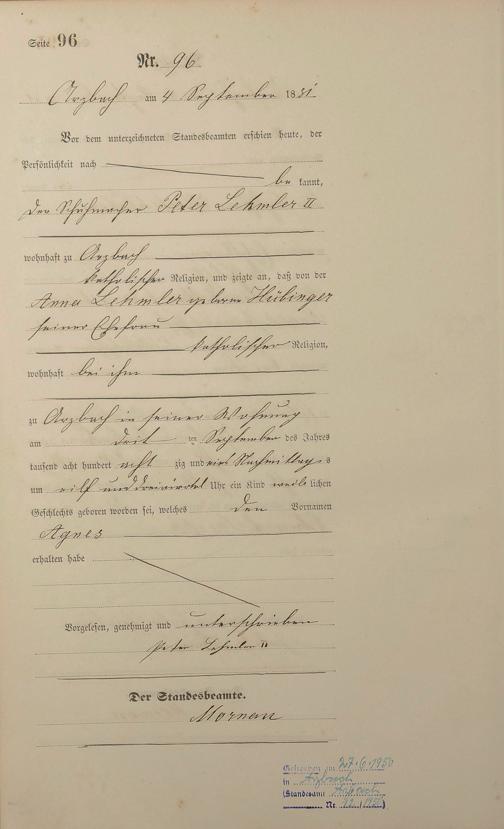 Seite 96
Nr. 96
Arzbach am 4 September 1881
Vor dem unterzeichneten Standesbeamten erschien heute, der
Persönlichkeit nach
be kannt,
der Schuhmacher Peter Lehmler II
wohnhaft zu Arzbach
katholischer Religion, und zeigte an, daß von der
Anna Lehmler geborne Hübinger
seiner Ehefrau
katholischer Religion,
wohnhaft bei ihm
zu Arzbach in seiner Wohnung
am ten September des Jahres
tausend acht hundert acht zig und eins Nachmittag s
um eilf und dreiviertel Uhr ein Kind weib lichen
Geschlechts geboren worden sei, welches den Vornamen
Agnes
erhalten habe
Vorgelesen, genehmigt und unterschrieben
Peter Lehmler II
Der Standesbeamte.
Gestorben am 27.6.1950
in Arzbach
(Standesamt Arzbach
Nr.